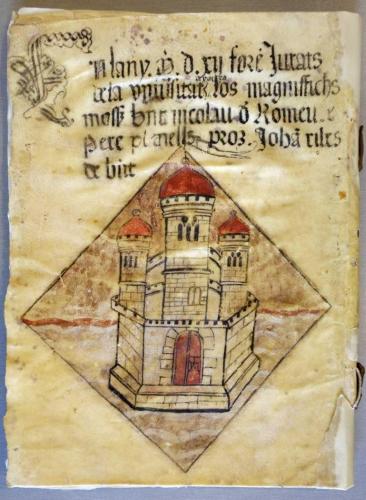 En lany M d xij foren Jurats
dela vniuersitat los magniffichs
mossen brnt nicolau d Romeu e
Pere planells proz. Johan riles
de brnt